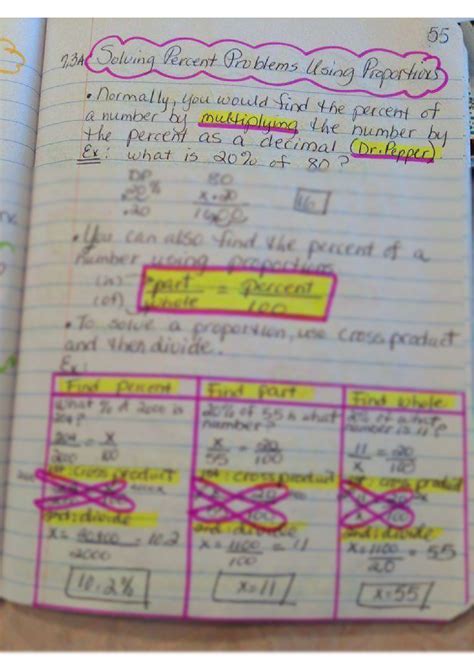 55
7.3A Solving Percent Problems Using Proportions
• Normally, you would find the percent of
a number by multiplying the number by
the percent as a decimal (Dr. Pepper)
Ex: what is 20% of 80?
DP 80
20% x .20
.20 1600
• You can also find the percent of a
number using proportions
(is) part = percent
(of) whole 100
• To solve a proportion, use cross product
and then divide.
Ex:
Find percent
What % of 2000 is
204?
204 = x
2000 100
1st: cross product
2nd: divide
x = 20400 = 10.2
2000
10.2%
Find part
20% of 55 is what
number?
x = 20
55 100
1st: cross product
2nd: divide
x = 1100 = 11
100
x=11
Find whole
20% of what
number is 11?
11 = 20
x 100
1st: cross product
2nd: divide
x = 1100 = 55
20
x=55